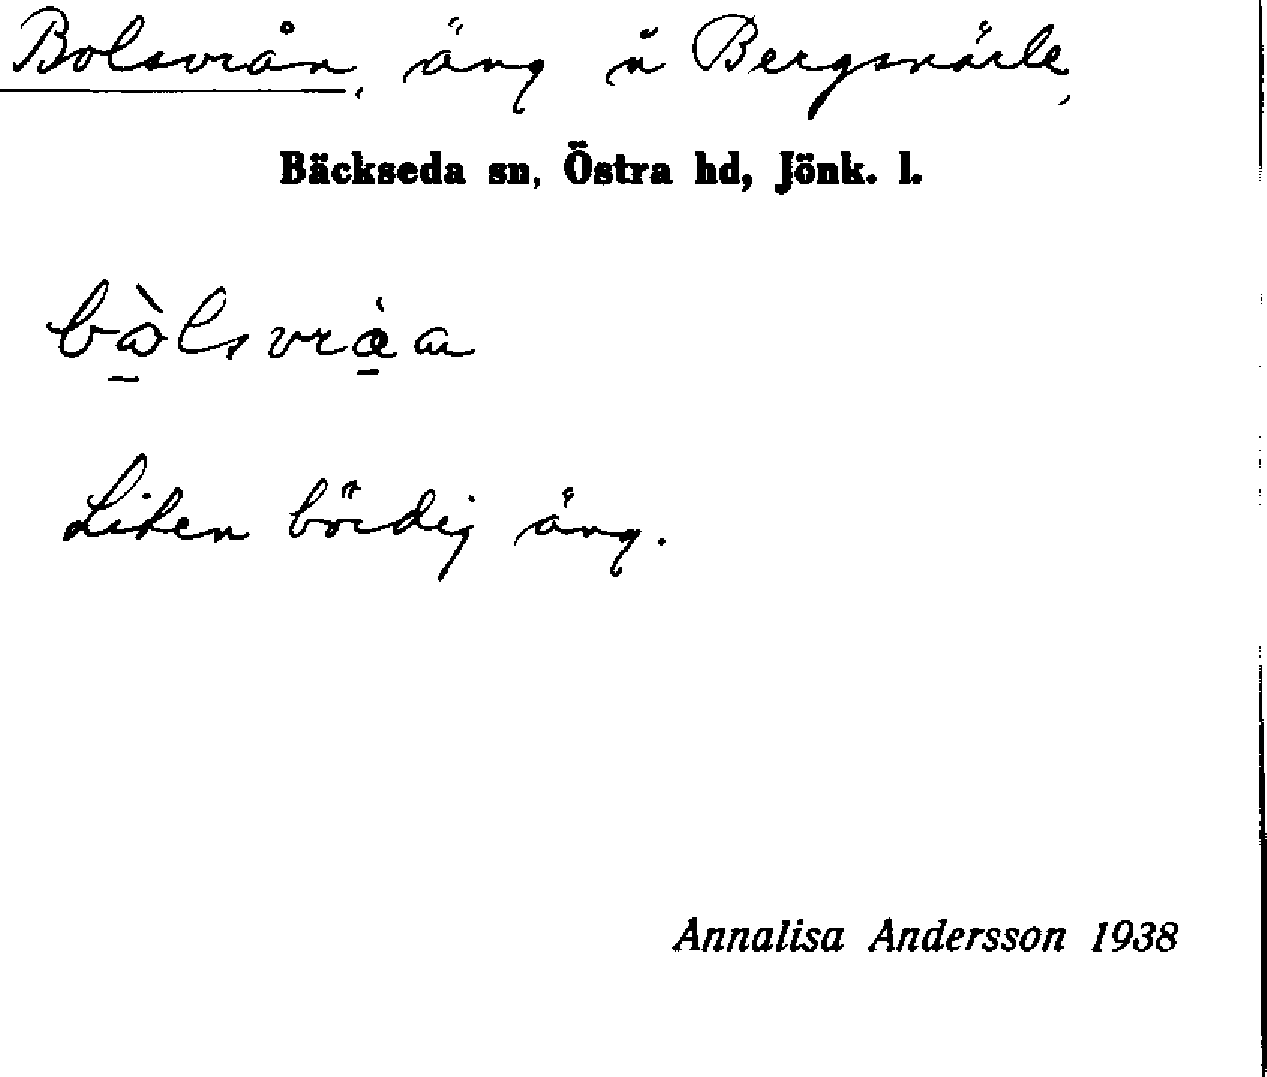 Bolsvrån, äng i Bergsnärle,
Bäckseda sn, Östra hd, Jönk. l.
Liten bördig äng.
Annalisa Andersson 1938